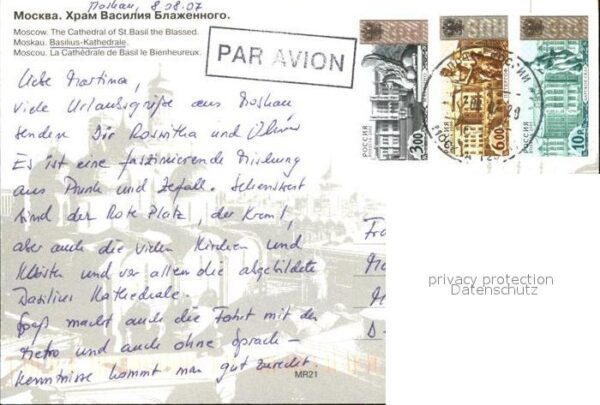 Moskau, 8.08.07
Москва. Храм Василия Блаженного.
Moscow. The Cathedral of St.Basil the Blassed.
Moskau. Basilius-Kathedrale.
Moscou. La Cathédrale de Basil le Bienheureux.
PAR AVION
Liebe Martina,
viele Urlaubsgrüße aus Moskau
senden Dir Roswitha und Oliver
Es ist eine faszinierende Mischung
aus Prunk und Zerfall. Sehenswert
sind der Rote Platz, der Kreml,
aber auch die vielen Kirchen und
Klöster und vor allem die abgebildete
Basilius Kathedrale.
Spaß macht auch die Fahrt mit der
Metro und auch ohne Sprach-
kenntnisse kommt man gut zurecht.
MR21
РОССИЯ
3.00
РОССИЯ
6.00
РОССИЯ
10 Р.
Fra
D-
privacy protection
Datenschutz